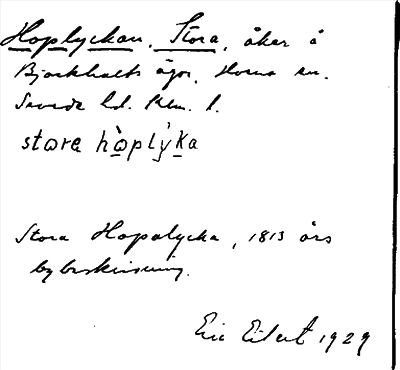 Hoplyckan, Stora, åker å
Björkhults ägor, Horns sn.
Sevede hd. Klm. l.
stora hòplýka
Stora Hopalycka, 1813 års
bybeskrivning.
Eric Eilert 1929